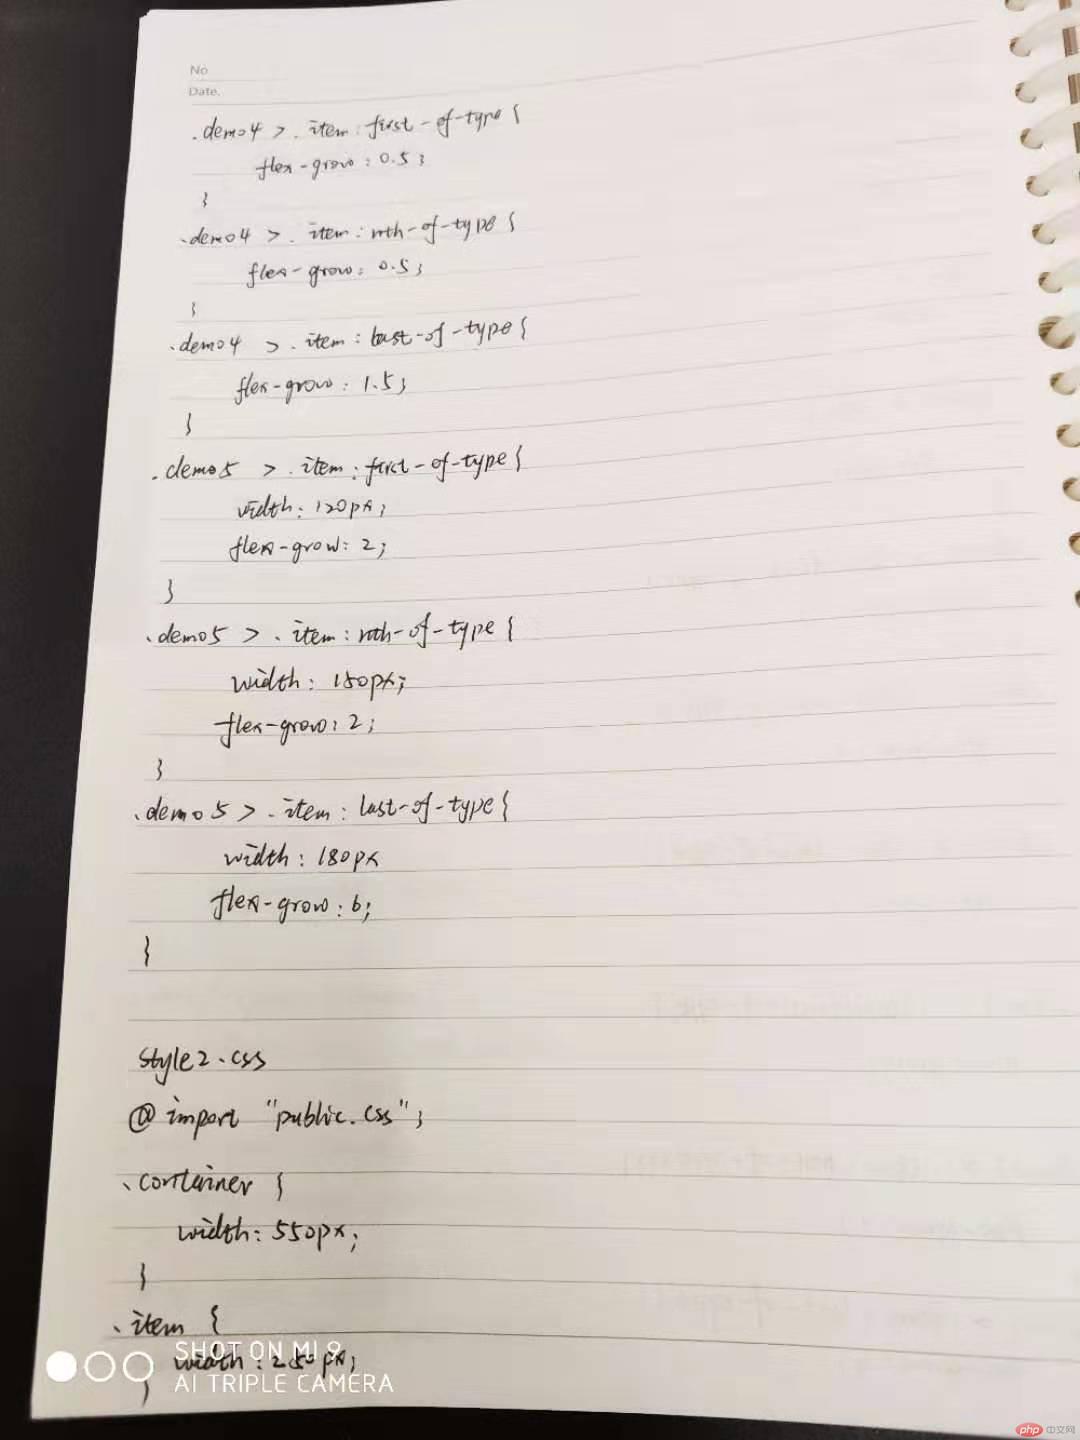 No
Date.
.demo4 > .item:first-of-type {
flex-grow: 0.5;
}
.demo4 > .item:nth-of-type {
flex-grow: 0.5;
}
.demo4 > .item:last-of-type {
flex-grow: 1.5;
}
.demo5 > .item:first-of-type {
width: 120px;
flex-grow: 2;
}
.demo5 > .item:nth-of-type {
width: 150px;
flex-grow: 2;
}
.demo5 > .item:last-of-type {
width: 180px
flex-grow: 6;
}
style2.css
@import "public.css";
.container {
width: 550px;
}
.item {
width: 250px;
}
SHOT ON MI 9
AI TRIPLE CAMERA
php 中文网